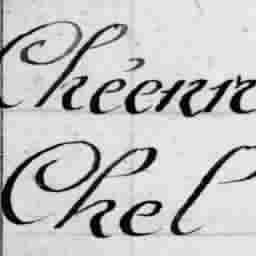 Chéenn
Chel